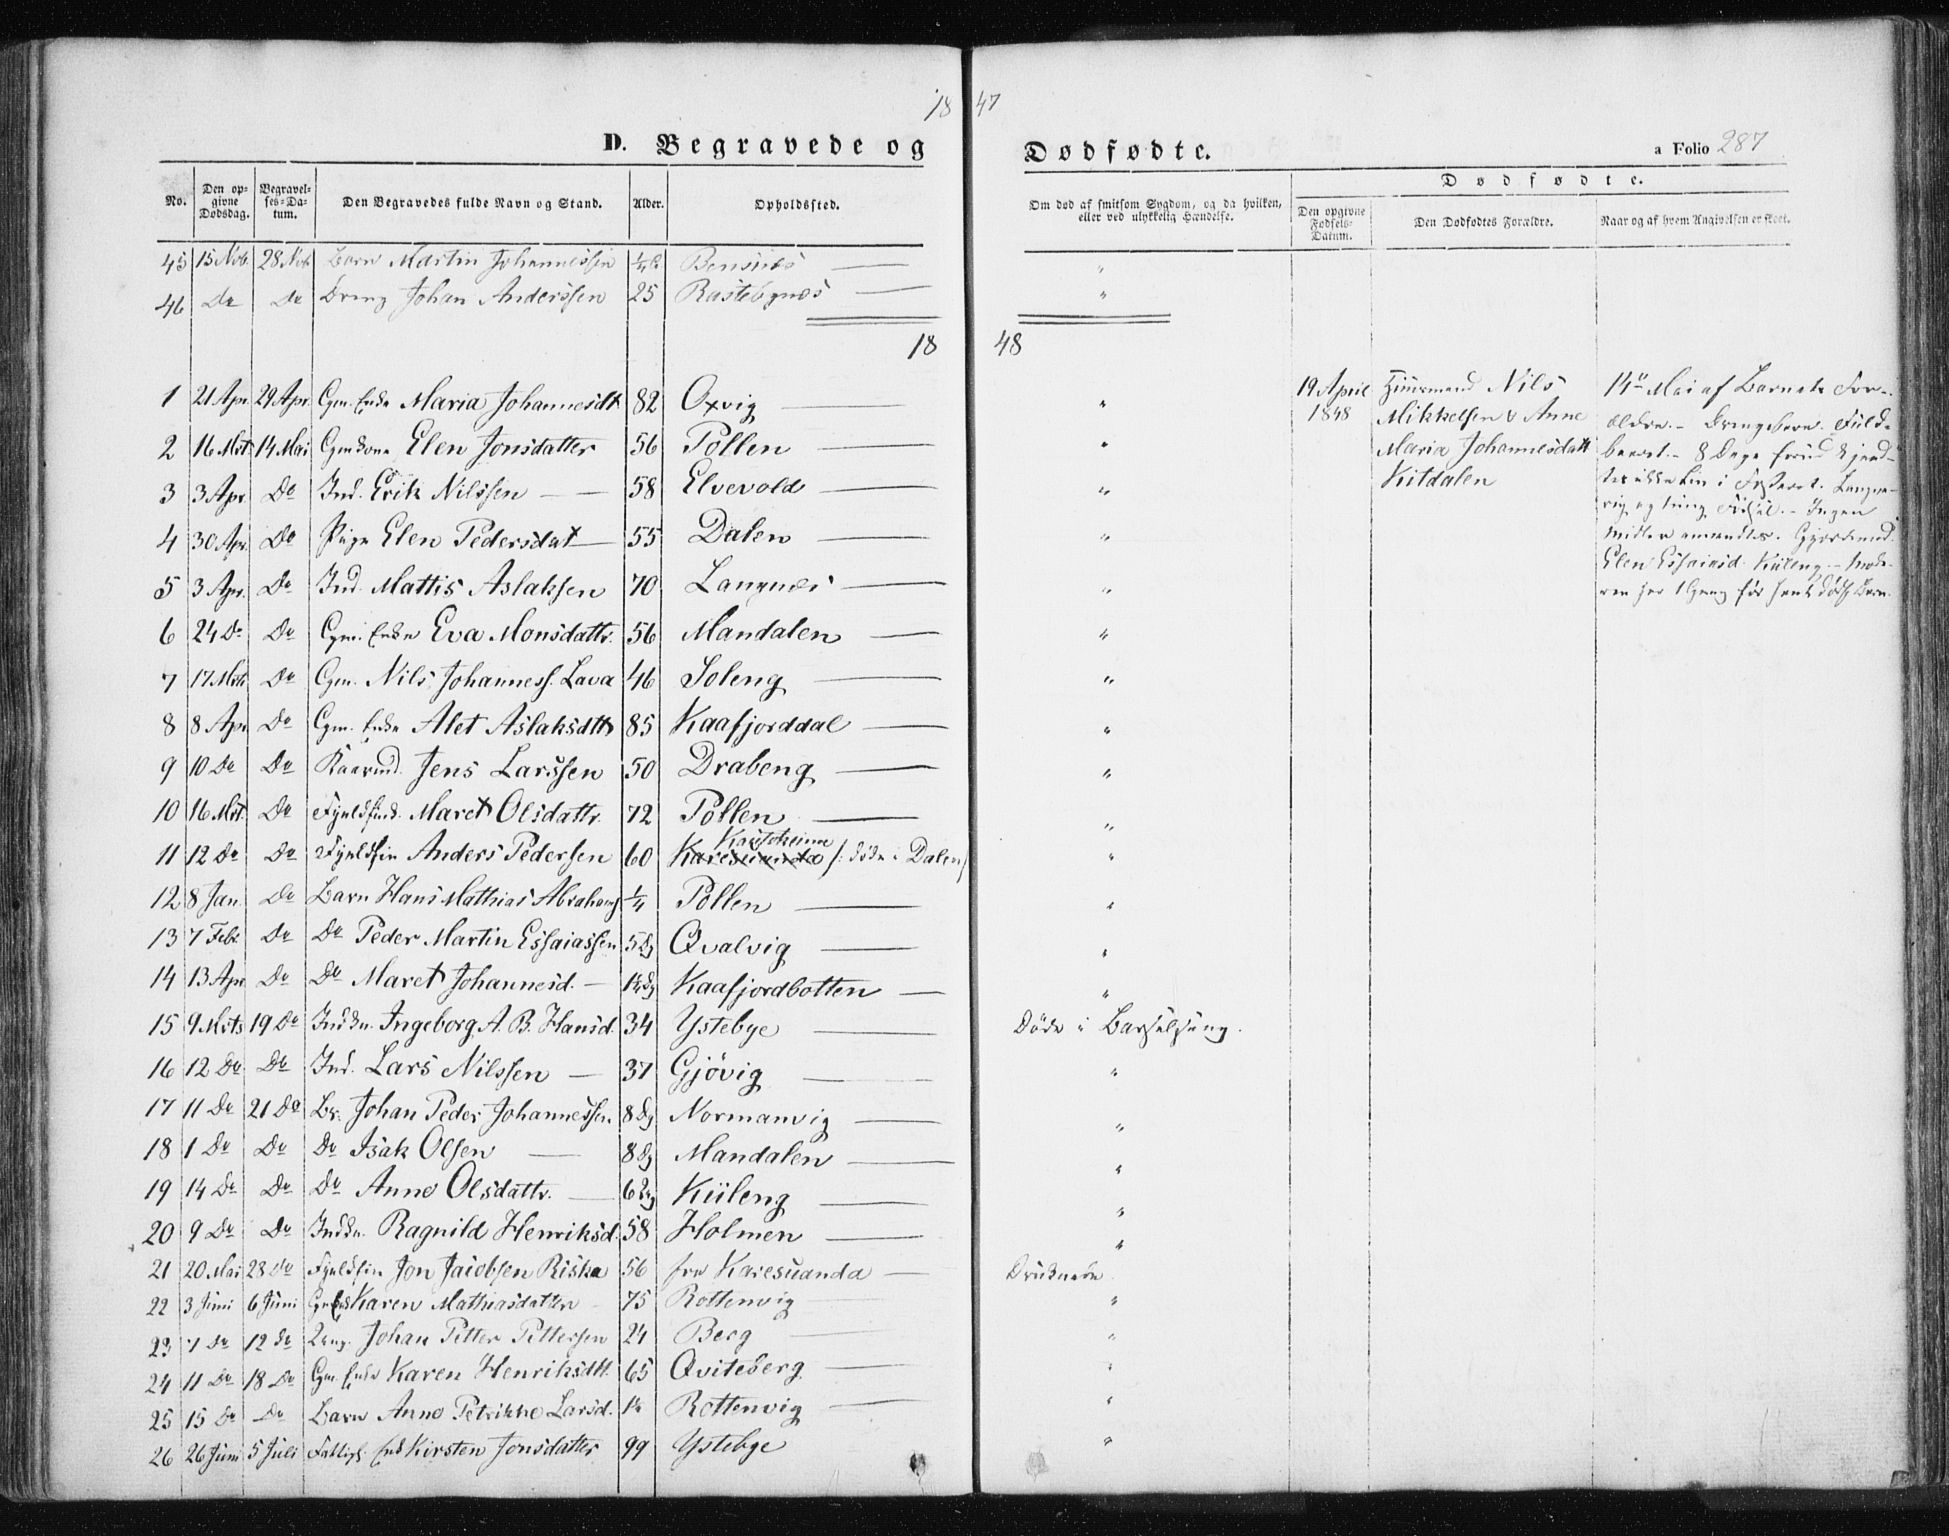 18 47
D. Begravede og Dødfødte.
a Folio 287
No. Den opgivne Dødsdag. Begravelses-Datum. Den Begravedes fulde Navn og Stand. Alder. Opholdssted. Om død af smitsom Sygdom, og da hvilken, eller ved ulykkelig Hændelse. Dødfødte. Den opgivne Fødsels-Datum. Den Dødfødtes Forældre. Naar og af hvem Angivelsen er skeet.
45 15 Nvb. 28 Nvb. Barn Martin Johannessen ¼ Bensnes "
46 Do Do Dreng Johan Anderssen 25 Rastebynes "
18 48
1 21 Apr. 29 Apr. Gm. Enke Maria Johannesdt 82 Oxvig "
2 16 Mrt. 14 Mai Gmkone Elen Jonsdatter 56 Pollen "
3 3 Apr. Do Ind. Erik Nilssen 58 Elvevold "
4 30 Apr. Do Pige Elen Pedersdat 55 Dalen "
5 3 Apr. Do Ind. Mattis Aslaksen 70 Langnes "
6 24 Do Do Gm. Enke Eva Monsdattr. 56 Mandalen "
7 17 Mrts Do Gm. Nils Johanness. Lava 46 Soleng "
8 8 Apr. Do Gm. Enke Alet Aslaksdttr 85 Kaafjorddal "
9 10 Do Do Kaarmd. Jens Larssen 50 Drabeng "
10 16 Mrt. Do Fjeldfink. Maret Olsdattr. 72 Pollen "
11 12 Do Do Fjeldfin Anders Pedersen 60 Karesuando Kautokeino /: døde i Dalen/ "
12 8 Jan. Do Barn Hans Mathias Abrahams ¼ Pollen "
13 7 Febr. Do Do Peder Martin Essaiassen 5 Dg Qvalvig "
14 13 Apr. Do Do Maret Johannesd. Dg Kaafjordbotten "
15 9 Mrts 19 Do Indkn. Ingeborg A. B. Hansd. 34 Ystebye Døde i Barselseng.
16 12 Do Do Ind. Lars Nilssen 37 Gjøvig "
17 11 Do 21 Do Br. Johan Peder Johannessen. 8 Dg Normanvig "
18 1 Do Do Do Isak Olsen 8 Dg Mandalen "
19 14 Do Do Do Anne Olsdattr. 6 Dg Küleng "
20 9 Do Do Indkn. Ragnild Henriksd. 58 Holmen "
21 20 Mai 28 Do Fjeldfin Jon Jacobsen Riska 56 fra Karesuanda Druknede.
22 3 Juni 6 Juni Gm Enk Karen Mathiasdatter 75 Rottenvig "
23 7 Do 12 Do Dreng. Johan Petter Pettersen 24 Berg "
24 11 Do 18 Do Gm. Enke Karen Henriksdtt. 65 Qviteberg "
25 15 Do Do Barn Anne Petrikke Larsd. Rottenvig "
26 26 Juni 5 Juli Fattigl. Enk Kirsten Jonsdatter 99 Ystebye "
19 April
1848
Nils
Mikkelsen & Anne
Maria Johannesdatt
Kitdalen
14de Mai af Barnets For-
ældre. - Drengebarn. Fuld-
baaret. - 8 Dage forud kjend-
tes ikke Liv i Fosteret. Langva-
rig og tung Fødsel. - Ingen
Midler anvendtes. Gjordemod.
Elen Essaiasd. Küleng. - Mode-
ren har 1 Gang før havt dødf. Barn.